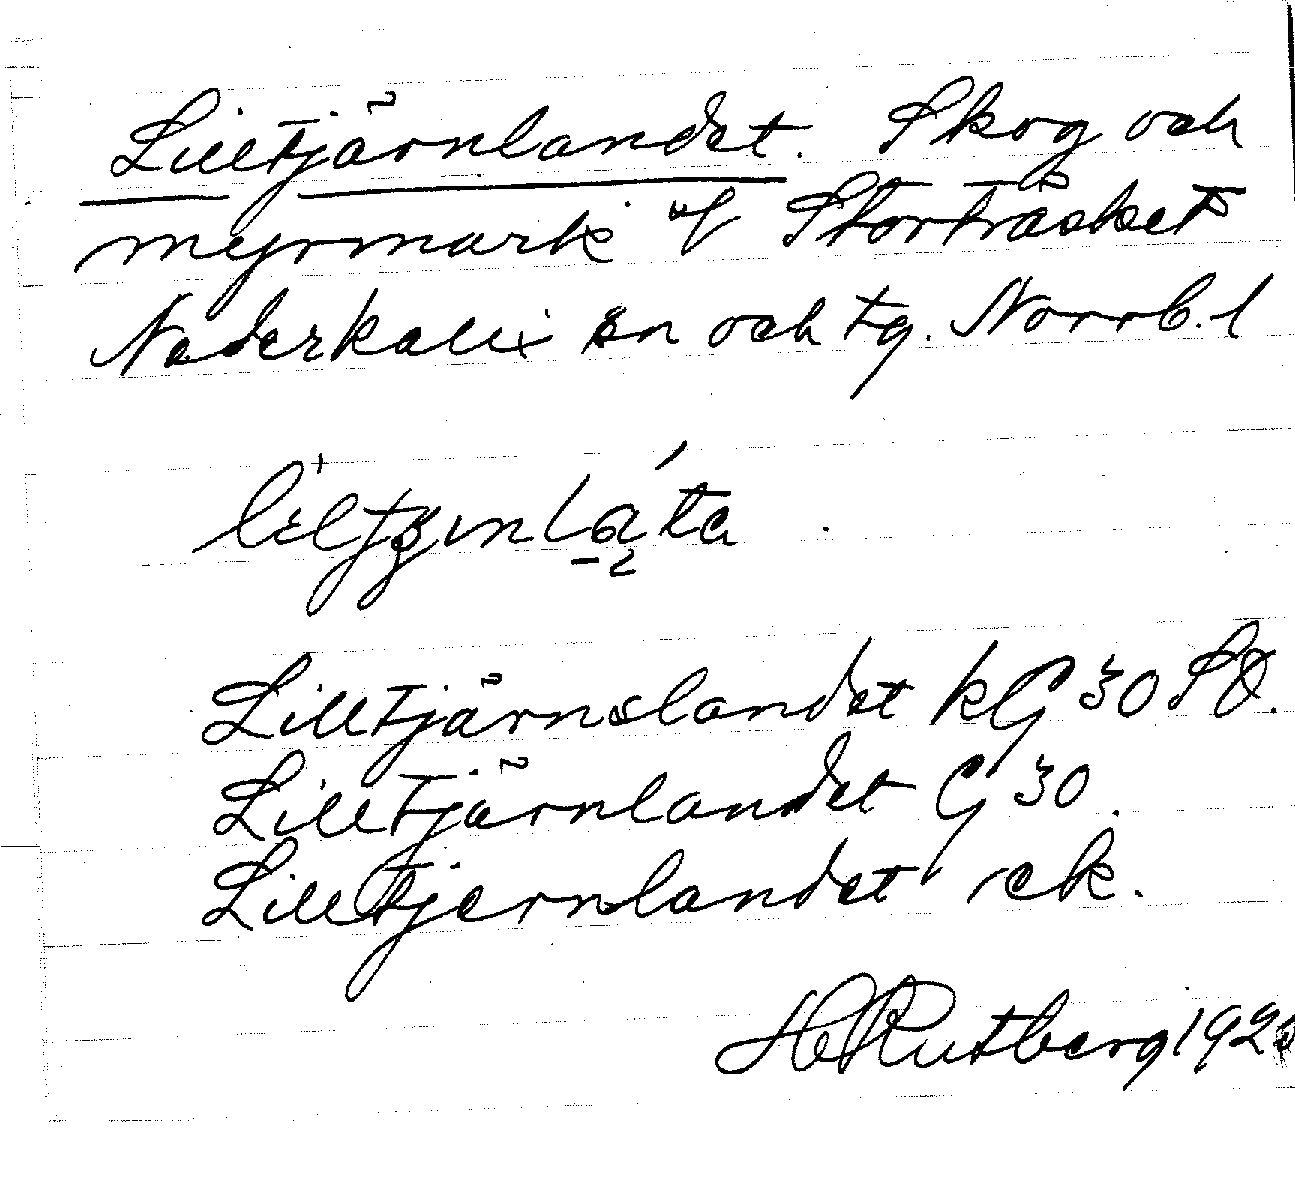 Lilltjärnlandet. Skog och
myrmark Storträsket
Nederkalix sn och tg. Norrb. l
Lilltjärnslandet kG 30 SO.
Lilltjärnlandet G 30.
Lilltjernlandet ek.
H Rutberg